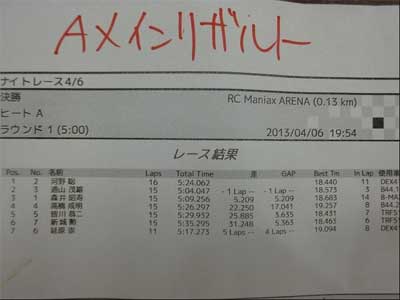 AXインリザルト
ナイトレース4/6
決勝 RC Maniax ARENA (0.13 km)
ヒート A
ラウンド 1 (5:00) 2013/04/06 19:54
レース結果
Pos. No. 名前 Laps Total Time 差 GAP Best Tm In Lap 使用車
1 2 河野 聡 16 5:24.062 18.440 11 DEX4
2 3 遠山 茂雄 15 5:04.047 - 1 Lap -- - 1 Lap -- 18.573 3 B44.1
3 1 森井 昭寿 15 5:09.256 5.209 5.209 18.683 14 B-MA
4 4 高橋 成明 15 5:26.297 22.250 17.041 19.257 8 B44.2
5 5 皆川 恭二 15 5:29.932 25.885 3.635 18.431 7 TRF51
6 7 新城 15 5:35.295 31.248 5.363 18.791 5 TRF51
7 6 延原 崇 11 5:17.273 5 Laps -- 4 Laps -- 19.094 8 DEX4